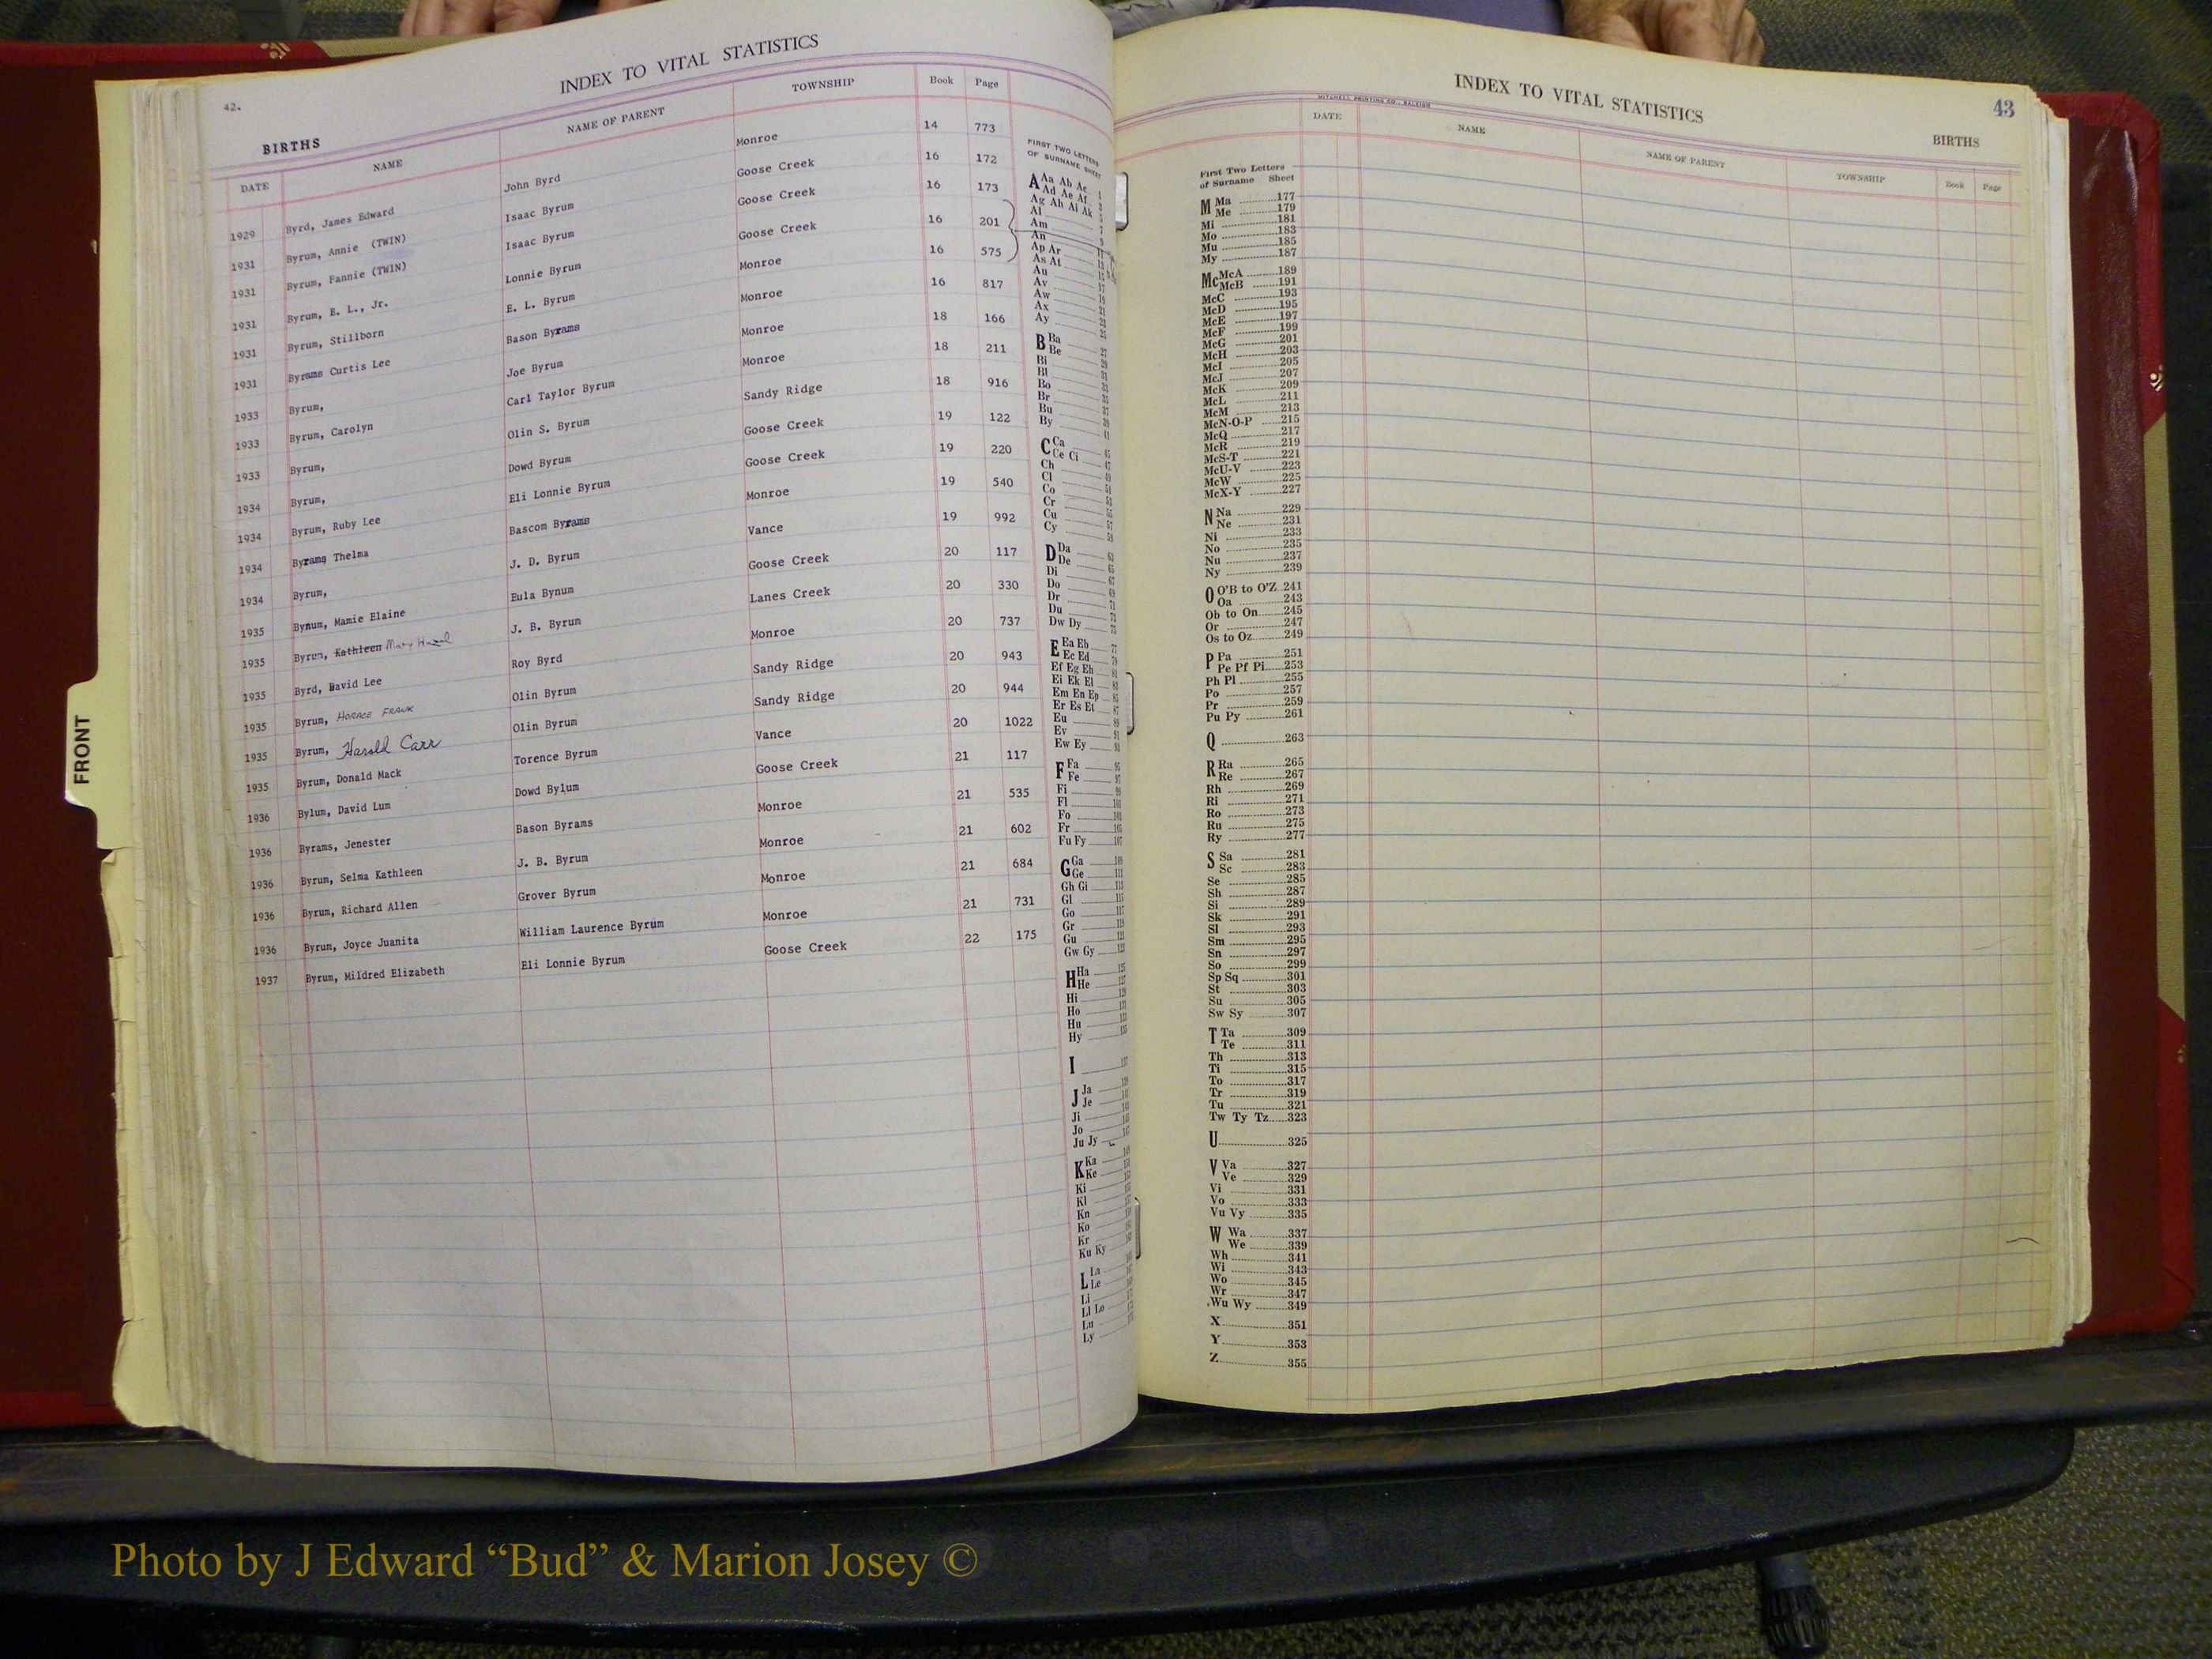 42.
INDEX TO VITAL STATISTICS
BIRTHS
DATE NAME NAME OF PARENT TOWNSHIP Book Page
1929 Byrd, James Edward John Byrd Monroe 14 773
1931 Byrum, Annie (TWIN) Isaac Byrum Goose Creek 16 172
1931 Byrum, Fannie (TWIN) Isaac Byrum Goose Creek 16 173
1931 Byrum, E. L., Jr. Lonnie Byrum Goose Creek 16 201
1931 Byrum, Stillborn E. L. Byrum Monroe 16 575
1931 Byrams Curtis Lee Bason Byrams Monroe 16 817
1933 Byrum, Joe Byrum Monroe 18 166
1933 Byrum, Carolyn Carl Taylor Byrum Monroe 18 211
1933 Byrum, Olin S. Byrum Sandy Ridge 18 916
1934 Byrum, Dowd Byrum Goose Creek 19 122
1934 Byrum, Ruby Lee Eli Lonnie Byrum Goose Creek 19 220
1934 Byrams Thelma Bascom Byrams Monroe 19 540
1934 Byrum, J. D. Byrum Vance 19 992
1935 Bynum, Mamie Elaine Eula Bynum Goose Creek 20 117
1935 Byrum, Kathleen Mary Hazel J. B. Byrum Lanes Creek 20 330
1935 Byrd, David Lee Roy Byrd Monroe 20 737
1935 Byrum, HORACE FRANK Olin Byrum Sandy Ridge 20 943
1935 Byrum, Harold Carr Olin Byrum Sandy Ridge 20 944
1935 Byrum, Donald Mack Torence Byrum Vance 20 1022
1936 Bylum, David Lum Dowd Bylum Goose Creek 21 117
1936 Byrams, Jenester Bason Byrams Monroe 21 535
1936 Byrum, Selma Kathleen J. B. Byrum Monroe 21 602
1936 Byrum, Richard Allen Grover Byrum Monroe 21 684
1936 Byrum, Joyce Juanita William Laurence Byrum Monroe 21 731
1937 Byrum, Mildred Elizabeth Eli Lonnie Byrum Goose Creek 22 175
FIRST TWO LETTERS
OF SURNAME SHEET
A Aa Ab Ac
Ad Ae Af
Ag Ah Ai Ak
Al
Am
An
Ap Ar
As At
Au
Av
Aw
Ax
Ay
B Ba
Be
Bi
Bl
Bo
Br
Bu
By
C Ca
Ce Ci
Ch
Cl
Co
Cr
Cu
Cy
D Da
De
Di
Do
Dr
Du
Dw Dy
E Ea Eb
Ec Ed
Ef Eg Eh
Ei Ek El
Em En Ep
Er Es Et
Eu
Ev
Ew Ey
F Fa
Fe
Fi
Fl
Fo
Fr
Fu Fy
G Ga
Ge
Gh Gi
Gl
Go
Gr
Gu
Gw Gy
H Ha
He
Hi
Ho
Hu
Hy
I
J Ja
Je
Ji
Jo
Ju Jy
K Ka
Ke
Ki
Kl
Kn
Ko
Kr
Ku Ky
L La
Le
Li
Ll Lo
Lu
Ly
FRONT
INDEX TO VITAL STATISTICS
43
MITCHELL PRINTING CO., RALEIGH
BIRTHS
DATE NAME NAME OF PARENT TOWNSHIP Book Page
First Two Letters
of Surname Sheet
M Ma 177
Me 179
Mi 181
Mo 183
Mu 185
My 187
Mc McA 189
McB 191
McC 193
McD 195
McE 197
McF 199
McG 201
McH 203
McI 205
McJ 207
McK 209
McL 211
McM 213
McN-O-P 215
McQ 217
McR 219
McS-T 221
McU-V 223
McW 225
McX-Y 227
N Na 229
Ne 231
Ni 233
No 235
Nu 237
Ny 239
O O'B to O'Z 241
Oa 243
Ob to On 245
Or 247
Os to Oz 249
P Pa 251
Pe Pf Pi 253
Ph Pl 255
Po 257
Pr 259
Pu Py 261
Q 263
R Ra 265
Re 267
Rh 269
Ri 271
Ro 273
Ru 275
Ry 277
S Sa 281
Sc 283
Se 285
Sh 287
Si 289
Sk 291
Sl 293
Sm 295
Sn 297
So 299
Sp Sq 301
St 303
Su 305
Sw Sy 307
T Ta 309
Te 311
Th 313
Ti 315
To 317
Tr 319
Tu 321
Tw Ty Tz 323
U 325
V Va 327
Ve 329
Vi 331
Vo 333
Vu Vy 335
W Wa 337
We 339
Wh 341
Wi 343
Wo 345
Wr 347
Wu Wy 349
X 351
Y 353
Z 355
Photo by J Edward “Bud” & Marion Josey ©